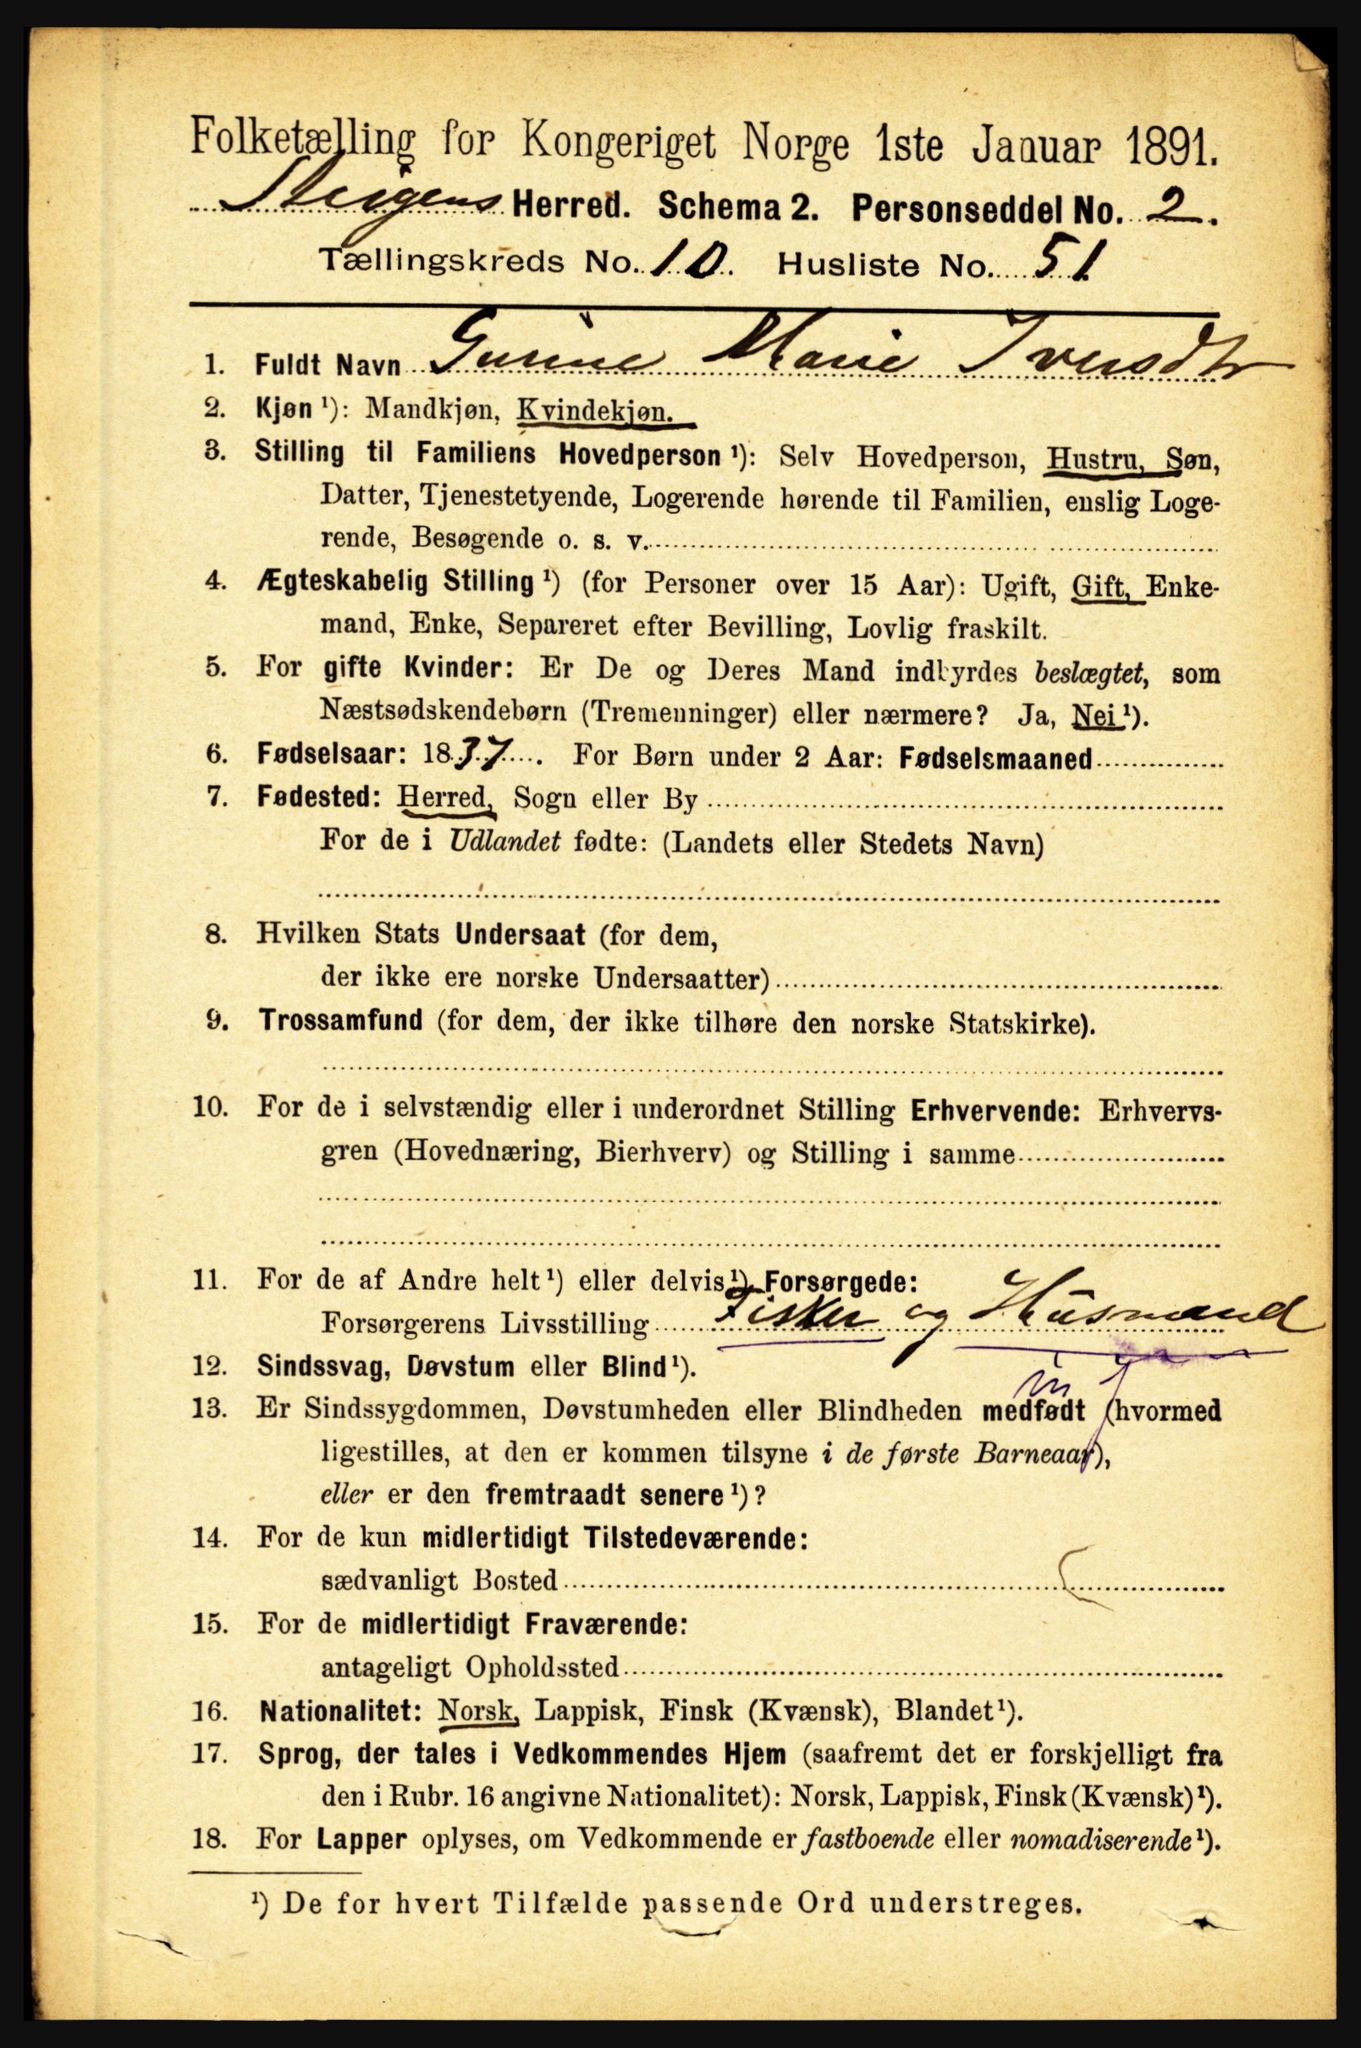 Folketælling for Kongeriget Norge 1ste Januar 1891.
Steigens Herred. Schema 2. Personseddel No. 2.
Tællingskreds No. 10. Husliste No. 51
1. Fuldt Navn Gurine Marie Iversdtr
2. Kjøn ¹): Mandkjøn, Kvindekjøn.
3. Stilling til Familiens Hovedperson ¹): Selv Hovedperson, Hustru, Søn,
Datter, Tjenestetyende, Logerende hørende til Familien, enslig Loge-
rende, Besøgende o. s. v.
4. Ægteskabelig Stilling ¹) (for Personer over 15 Aar): Ugift, Gift, Enke-
mand, Enke, Separeret efter Bevilling, Lovlig fraskilt.
5. For gifte Kvinder: Er De og Deres Mand indbyrdes beslægtet, som
Næstsødskendebørn (Tremenninger) eller nærmere? Ja, Nei ¹).
6. Fødselsaar: 1837. For Børn under 2 Aar: Fødselsmaaned
7. Fødested: Herred, Sogn eller By
For de i Udlandet fødte: (Landets eller Stedets Navn)
8. Hvilken Stats Undersaat (for dem,
der ikke ere norske Undersaatter)
9. Trossamfund (for dem, der ikke tilhøre den norske Statskirke).
10. For de i selvstændig eller i underordnet Stilling Erhvervende: Erhvervs-
gren (Hovednæring, Bierhverv) og Stilling i samme
11. For de af Andre helt ¹) eller delvis ¹) Forsørgede:
Forsørgerens Livsstilling Fisker og Husmand
12. Sindssvag, Døvstum eller Blind ¹).
13. Er Sindssygdommen, Døvstumheden eller Blindheden medfødt (hvormed
ligestilles, at den er kommen tilsyne i de første Barneaar),
eller er den fremtraadt senere ¹)?
14. For de kun midlertidigt Tilstedeværende:
sædvanligt Bosted
15. For de midlertidigt Fraværende:
antageligt Opholdssted
16. Nationalitet: Norsk, Lappisk, Finsk (Kvænsk), Blandet ¹).
17. Sprog, der tales i Vedkommendes Hjem (saafremt det er forskjelligt fra
den i Rubr. 16 angivne Nationalitet): Norsk, Lappisk, Finsk (Kvænsk) ¹).
18. For Lapper oplyses, om Vedkommende er fastboende eller nomadiserende ¹).
¹) De for hvert Tilfælde passende Ord understreges.